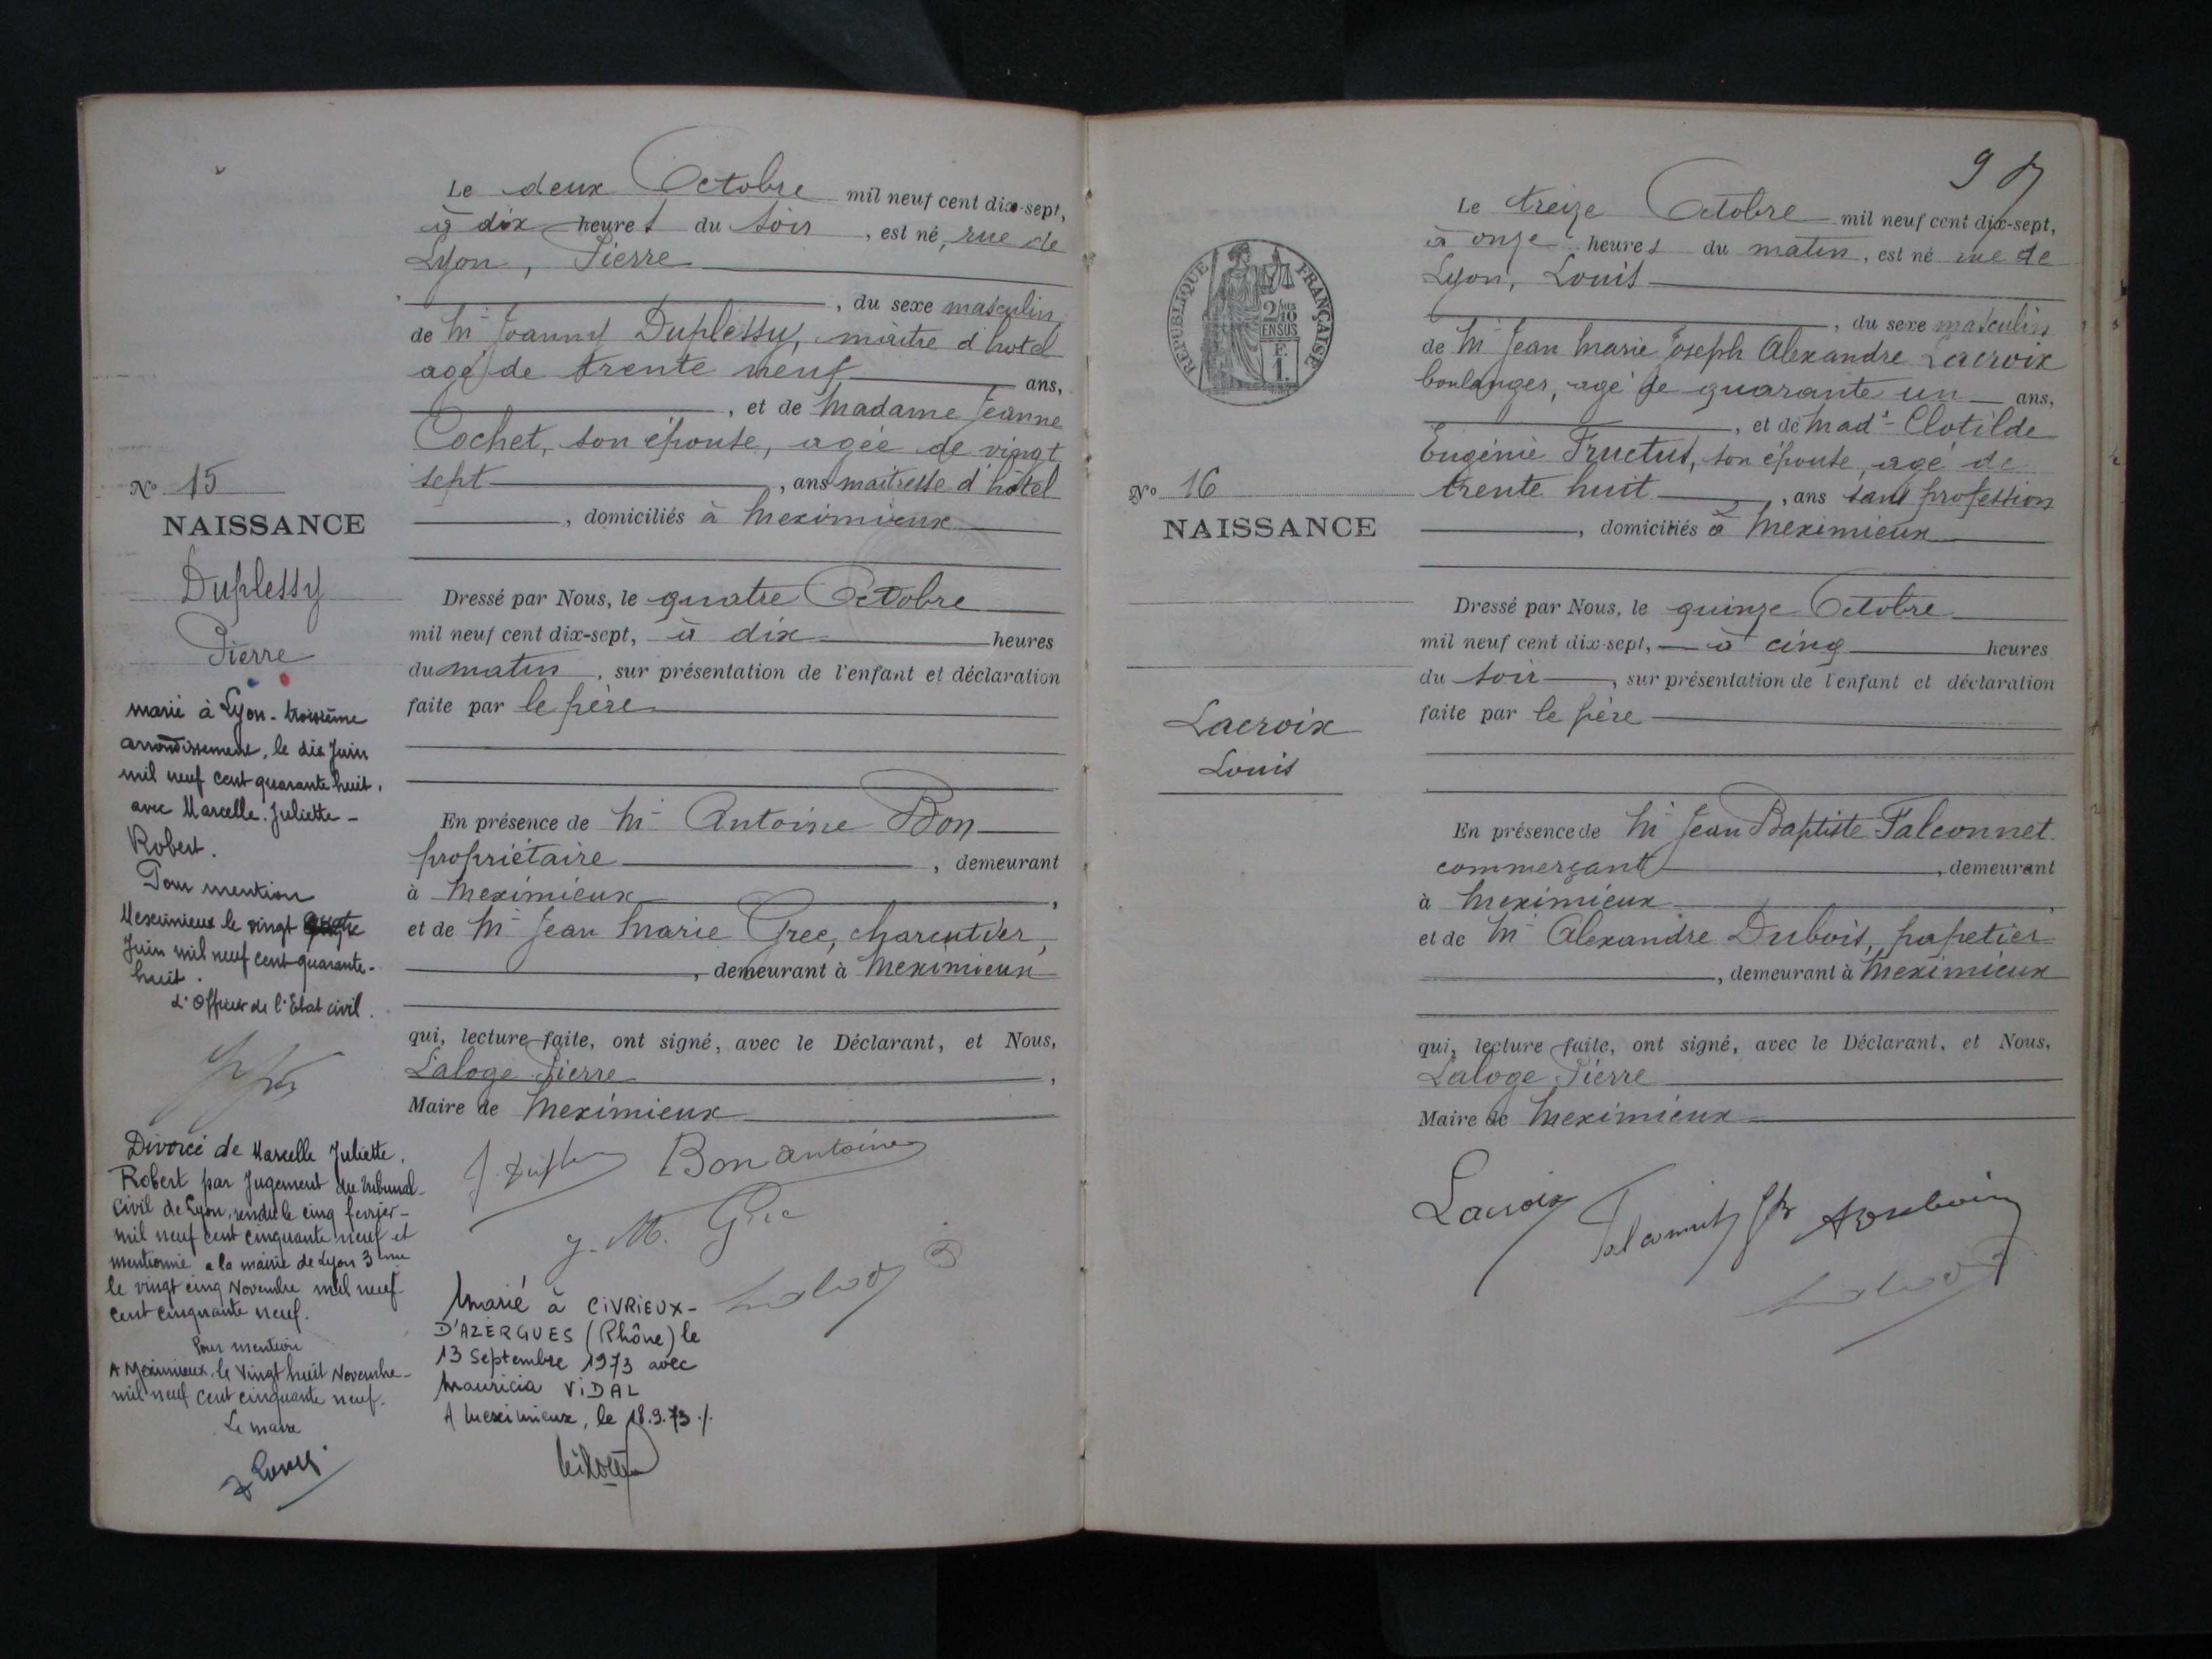 Le deux Octobre mil neuf cent dix-sept,
à dix heures du soir, est né, rue de
Lyon, Pierre
, du sexe masculin
de Mr Joanny Duplessy, maître d'hotel
agé de trente neuf ans,
, et de Madame Jeanne
Cochet, son épouse, agée de vingt
sept, ans maitresse d'hôtel
, domiciliés à Meximieux
No 15
NAISSANCE
Duplessy
Pierre
Dressé par Nous, le quatre Octobre
mil neuf cent dix-sept, à dix heures
du matin, sur présentation de l'enfant et déclaration
faite par le père
En présence de Mr Antoine Bon
propriétaire, demeurant
à Meximieux,
et de Mr Jean Marie Grec, charcutier,
, demeurant à Meximieux
qui, lecture faite, ont signé, avec le Déclarant, et Nous,
Laloge Pierre,
Maire de Meximieux
Bon antoine
J. M. Grec
marié à Lyon - troisième
arrondissement, le dix Juin
mil neuf cent quarante huit,
avec Marcelle. Juliette -
Robert.
Pour mention
Meximieux le vingt
Juin mil neuf cent quarante-
huit.
L'Officier de l'Etat civil.
Divorcé de Marcelle Juliette.
Robert par Jugement du tribunal-
civil de Lyon, rendu le cinq fevrier-
mil neuf cent cinquante neuf et
mentionné a la mairie de Lyon 3 me
le vingt cinq Novembre mil neuf-
cent cinquante neuf.
Pour mention
A Meximieux, le Vingt huit Novembre-
mil neuf cent cinquante neuf-
Le maire
Marié à CIVRIEUX-
D'AZERGUES (Rhône) le
13 Septembre 1973 avec
Mauricia VIDAL
A Meximieux, le 18.9.73./.
9
Le treize Octobre mil neuf cent dix-sept,
à onze heures du matin, est né rue de
Lyon, Louis
, du sexe masculin
de Mr Jean Marie Joseph Alexandre Lacroix
boulanger, agé de quarante un ans,
, et de Made Clotilde
Eugénie Fructus, son épouse, agé de
trente huit, ans sans profession
, domiciliés à Meximieux
RÉPUBLIQUE FRANÇAISE
2/10
EN SUS
F.
1.
No 16
NAISSANCE
Lacroix
Louis
Dressé par Nous, le quinze Octobre
mil neuf cent dix-sept, à cinq heures
du soir, sur présentation de l'enfant et déclaration
faite par le père
En présence de Mr Jean Baptiste Falconnet
commerçant, demeurant
à Meximieux,
et de Mr Alexandre Dubois, papetier
, demeurant à Meximieux
qui, lecture faite, ont signé, avec le Déclarant, et Nous,
Laloge Pierre
Maire de Meximieux
Lacroix Falconnet